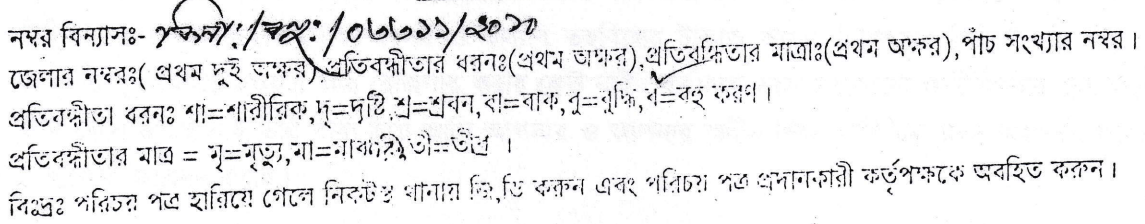 নম্বর বিন্যাসঃ- /০৬৬১১/২০১০
জেলার নম্বরঃ( প্রথম দুই অক্ষর),প্রতিবন্ধীতার ধরনঃ(প্রথম অক্ষর),প্রতিবন্ধিতার মাত্রাঃ(প্রথম অক্ষর),পাঁচ সংখ্যার নম্বর।
প্রতিবন্ধীতা ধরনঃ শা=শারীরিক,দৃ=দৃষ্টি,শ্র=শ্রবন,বা=বাক,বু=বুদ্ধি,ব=বহু করণ।
প্রতিবন্ধীতার মাত্র = মৃ=মৃত্যু,মা=মাঝারি,তী=তীব্র ।
বিঃদ্রঃ পরিচয় পত্র হারিয়ে গেলে নিকটস্থ থানায় জি,ডি করুন এবং পরিচয় পত্র প্রদানকারী কর্তৃপক্ষকে অবহিত করুন।